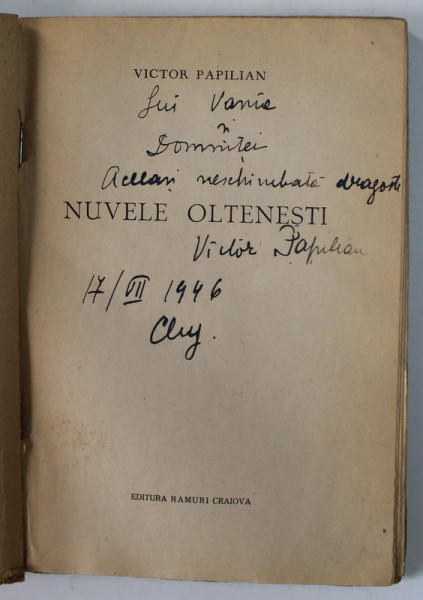 VICTOR PAPILIAN
Lui Vania
și
Domniței
Aceeași neschimbată dragoste
NUVELE OLTENEȘTI
Victor Papilian
17/VII 1946
Cluj.
EDITURA RAMURI CRAIOVA